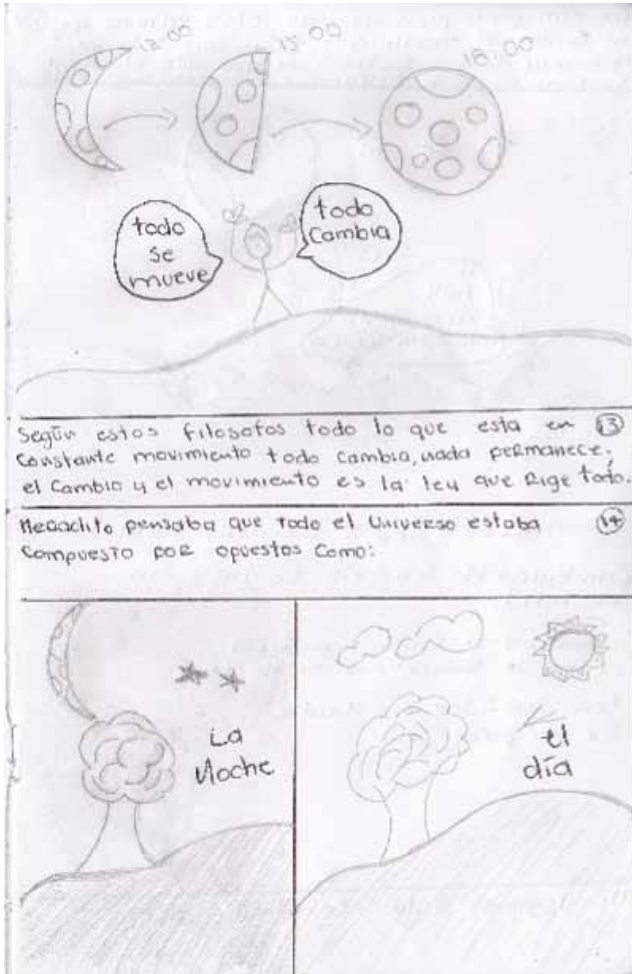 12:00
15:00
18:00
todo
se
mueve
todo
Cambia
Según estos filosofos todo lo que esta en 13
Constante movimiento todo cambia, nada permanece,
el Cambio y el movimiento es la ley que Rige todo.
Heraclito pensaba que todo el Universo estaba 14
Compuesto por opuestos Como:
La
Noche
el
día